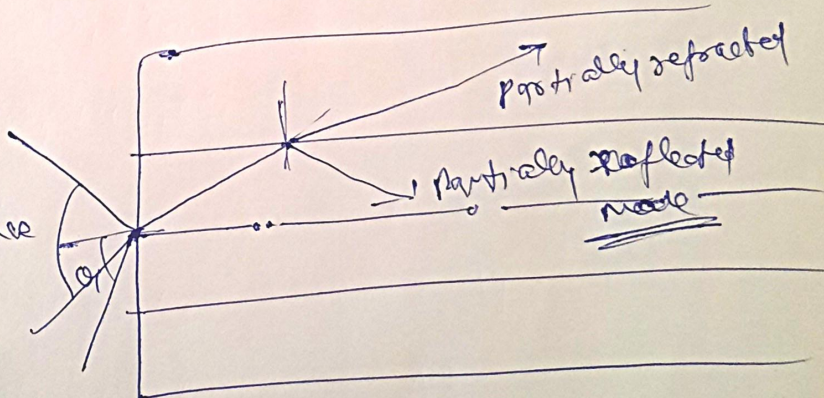 Partially refracted
Partially Reflected
mode
θ